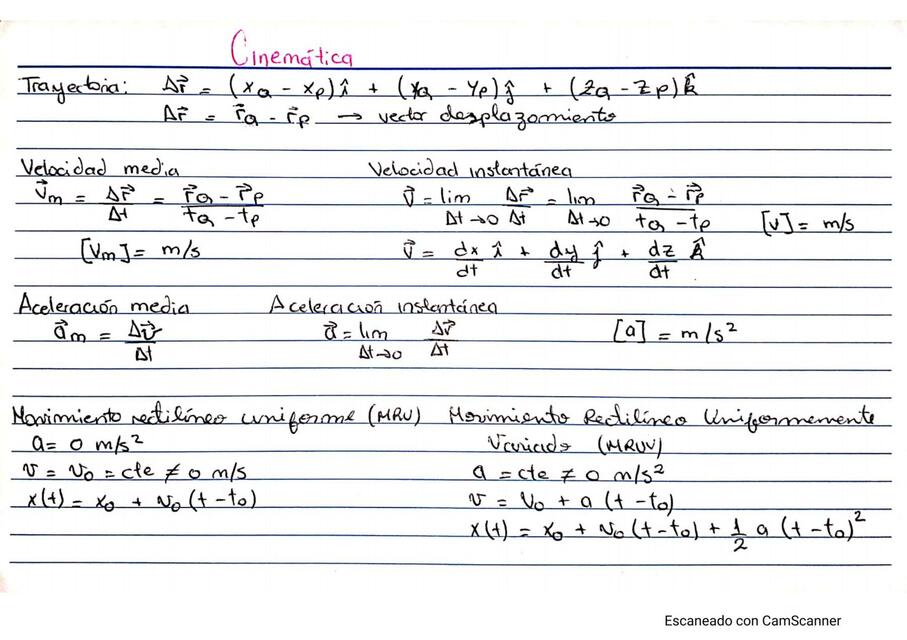 Cinemática
Trayectoria: Δr⃗ = (xQ - xP) î + (yQ - yP) ĵ + (zQ - zP) k̂
Δr⃗ = r⃗Q - r⃗P → vector desplazamiento
Velocidad media
v⃗m = Δr⃗/Δt = (r⃗Q - r⃗P)/(tQ - tP)
[vm] = m/s
Velocidad instantánea
v⃗ = lim Δt→0 Δr⃗/Δt = lim Δt→0 (r⃗Q - r⃗P)/(tQ - tP) [v] = m/s
v⃗ = dx/dt î + dy/dt ĵ + dz/dt k̂
Aceleración media
a⃗m = Δv⃗/Δt
Aceleración instantánea
a⃗ = lim Δt→0 Δv⃗/Δt [a] = m/s²
Movimiento rectilíneo uniforme (MRU)
a = 0 m/s²
v = v₀ = cte ≠ 0 m/s
x(t) = x₀ + v₀ (t - t₀)
Movimiento Rectilíneo Uniformemente
Variado (MRUV)
a = cte ≠ 0 m/s²
v = v₀ + a (t - t₀)
x(t) = x₀ + v₀ (t - t₀) + 1/2 a (t - t₀)²
Escaneado con CamScanner